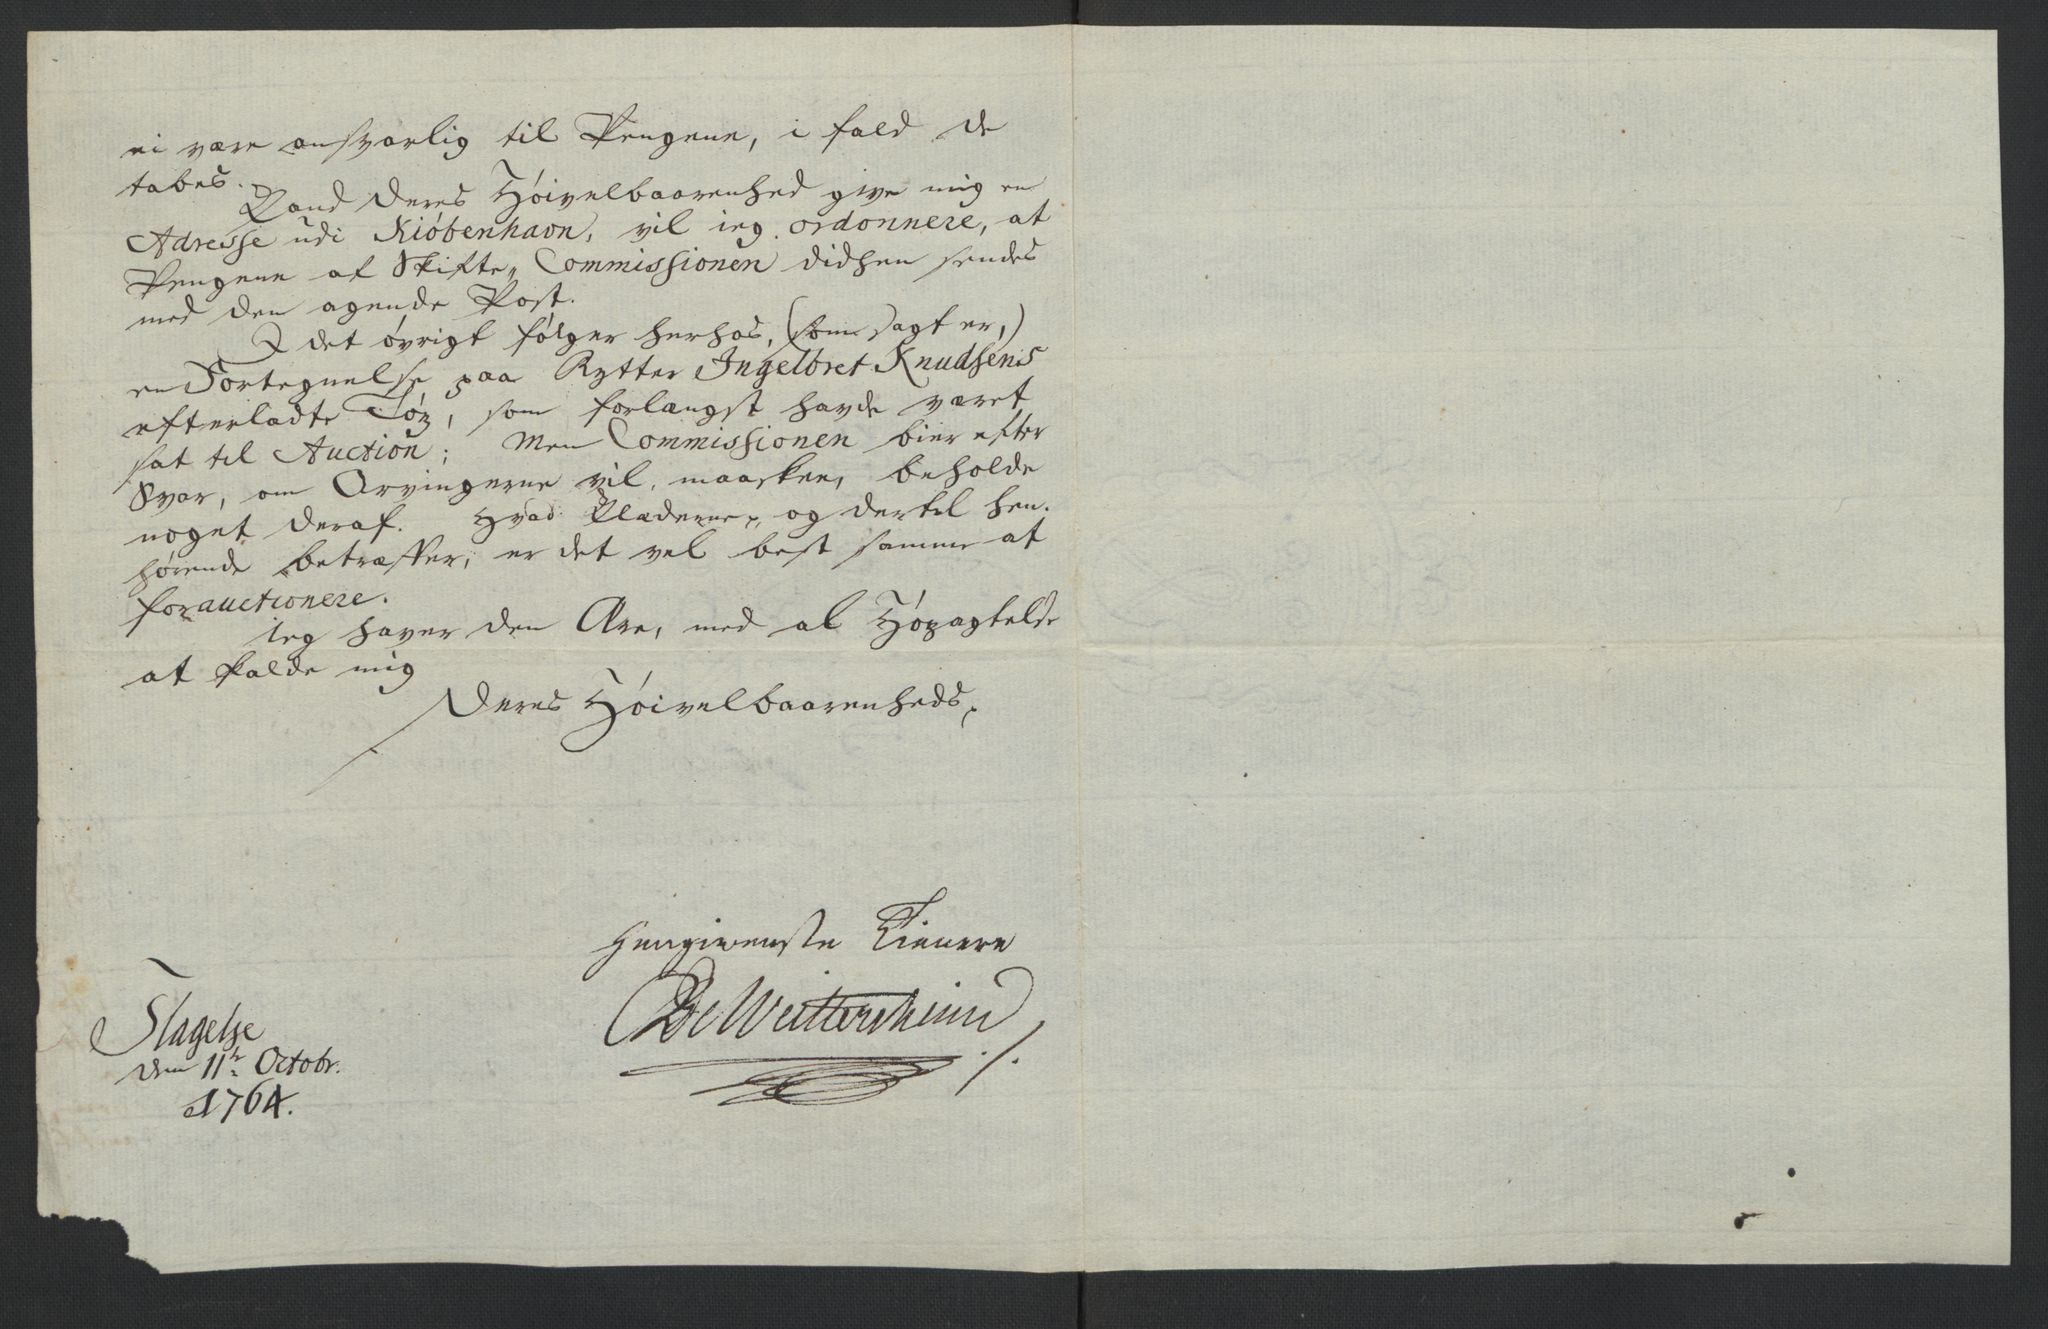 ei være ansvarlig til Pengene, i fald de
tabes.
Vand Deres Høivelbaarenhed give mig en
Adresse udi Kiøbenhavn, vil ieg ordonnere, at
Pengene af Skifte-Commissionen didhen sendes
med den agende Post.
I det øvrigt følger herhos, (som sagt er,)
en Fortegnelse paa Rytter Ingelbret Knudsens
efterladte Tøy, som forlængst havde været
sat til Auction; Men Commissionen bier efter
Svar, om Arvingerne vil, maaskee, beholde
noget deraf. Hvad Klæderne, og dertil hen-
hørende betræffer, er det vel best samme at
forauctionere.
Ieg haver den Ære, med al Høyagtelse
at kalde mig
Deres Høivelbaarenheds,
Hengivenste Tienere
De Weittersheim
Slagelse
den 11te Octobr.
1764.